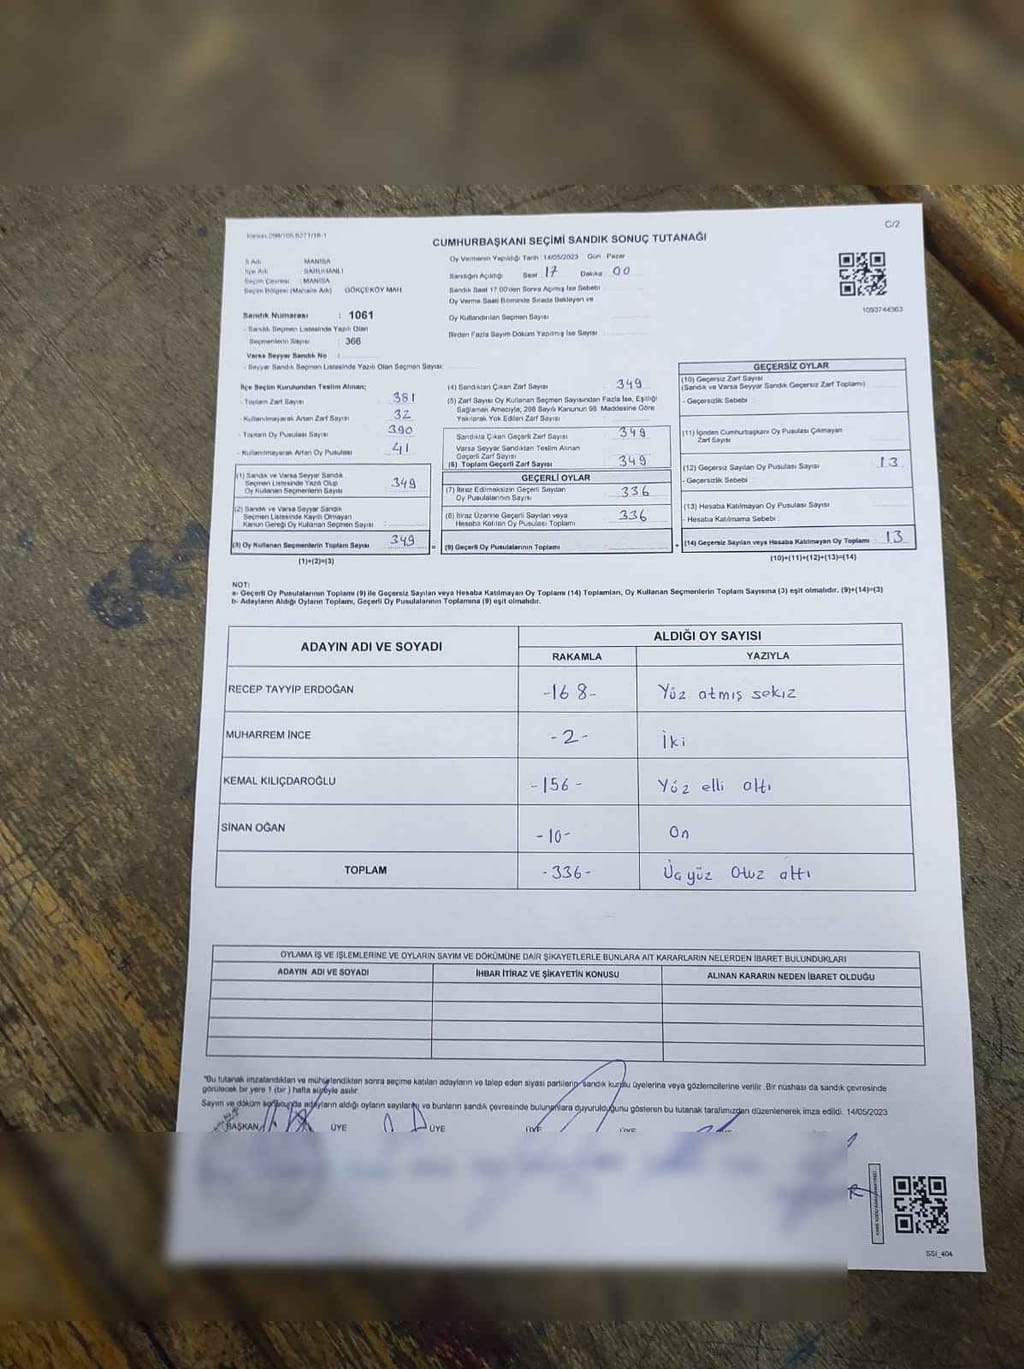 C/2
CUMHURBAŞKANI SEÇİMİ SANDIK SONUÇ TUTANAĞI
İl Adı : MANİSA
İlçe Adı : SARUHANLI
Seçim Çevresi : MANİSA
Seçim Bölgesi (Mahalle Adı) GÖKÇEKÖY MAH.
Oy Vermenin Yapıldığı Tarih : 14/05/2023 Gün : Pazar
Sandığın Açıldığı Saat : 17 Dakika 00
Sandık Saat 17:00'den Sonra Açılmış İse Sebebi
Oy Verme Saati Bitiminde Sırada Bekleyen ve
Oy Kullandırılan Seçmen Sayısı
Birden Fazla Sayım Döküm Yapılmış İse Sayısı
1093744363
Sandık Numarası : 1061
- Sandık Seçmen Listesinde Yazılı Olan
Seçmenlerin Sayısı : 366
Varsa Seyyar Sandık No :
- Seyyar Sandık Seçmen Listesinde Yazılı Olan Seçmen Sayısı:
İlçe Seçim Kurulundan Teslim Alınan;
- Toplam Zarf Sayısı 381
- Kullanılmayarak Artan Zarf Sayısı 32
- Toplam Oy Pusulası Sayısı 390
- Kullanılmayarak Artan Oy Pusulası 41
(1) Sandık ve Varsa Seyyar Sandık
Seçmen Listesinde Yazılı Olup
Oy Kullanan Seçmenlerin Sayısı 349
(2) Sandık ve Varsa Seyyar Sandık
Seçmen Listesinde Kayıtlı Olmayan
Kanun Gereği Oy Kullanan Seçmen Sayısı :
(3) Oy Kullanan Seçmenlerin Toplam Sayısı 349
(1)+(2)=(3)
(4) Sandıktan Çıkan Zarf Sayısı 349
(5) Zarf Sayısı Oy Kullanan Seçmen Sayısından Fazla İse, Eşitliği
Sağlamak Amacıyla; 298 Sayılı Kanunun 98. Maddesine Göre
Yakılarak Yok Edilen Zarf Sayısı
Sandıkta Çıkan Geçerli Zarf Sayısı 349
Varsa Seyyar Sandıktan Teslim Alınan
Geçerli Zarf Sayısı
(6) Toplam Geçerli Zarf Sayısı 349
GEÇERLİ OYLAR
(7) İtiraz Edilmeksizin Geçerli Sayılan
Oy Pusulalarının Sayısı 336
(8) İtiraz Üzerine Geçerli Sayılan veya
Hesaba Katılan Oy Pusulası Toplamı 336
= (9) Geçerli Oy Pusulalarının Toplamı
GEÇERSİZ OYLAR
(10) Geçersiz Zarf Sayısı
(Sandık ve Varsa Seyyar Sandık Geçersiz Zarf Toplamı)
- Geçersizlik Sebebi
(11) İçinden Cumhurbaşkanı Oy Pusulası Çıkmayan
Zarf Sayısı
(12) Geçersiz Sayılan Oy Pusulası Sayısı 13
- Geçersizlik Sebebi
(13) Hesaba Katılmayan Oy Pusulası Sayısı
- Hesaba Katılmama Sebebi :
+ (14) Geçersiz Sayılan veya Hesaba Katılmayan Oy Toplamı 13
(10)+(11)+(12)+(13)=(14)
NOT:
a- Geçerli Oy Pusulalarının Toplamı (9) ile Geçersiz Sayılan veya Hesaba Katılmayan Oy Toplamı (14) Toplamları, Oy Kullanan Seçmenlerin Toplam Sayısına (3) eşit olmalıdır. (9)+(14)=(3)
b- Adayların Aldığı Oyların Toplamı, Geçerli Oy Pusulalarının Toplamına (9) eşit olmalıdır.
ADAYIN ADI VE SOYADI
ALDIĞI OY SAYISI
RAKAMLA YAZIYLA
RECEP TAYYİP ERDOĞAN -168- Yüz atmış sekiz
MUHARREM İNCE -2- İki
KEMAL KILIÇDAROĞLU -156- Yüz elli altı
SİNAN OĞAN -10- On
TOPLAM -336- Üçyüz Otuz altı
OYLAMA İŞ VE İŞLEMLERİNE VE OYLARIN SAYIM VE DÖKÜMÜNE DAİR ŞİKAYETLERLE BUNLARA AİT KARARLARIN NELERDEN İBARET BULUNDUKLARI
ADAYIN ADI VE SOYADI İHBAR İTİRAZ VE ŞİKAYETİN KONUSU ALINAN KARARIN NEDEN İBARET OLDUĞU
"Bu tutanak imzalandıktan ve mühürlendikten sonra seçime katılan adayların ve talep eden siyasi partilerin sandık kurulu üyelerine veya gözlemcilerine verilir. Bir nüshası da sandık çevresinde
görülecek bir yere 1 (bir) hafta süreyle asılır.
Sayım ve döküm sonucunda adayların aldığı oyların sayılarını ve bunların sandık çevresinde bulunanlara duyurulduğunu gösteren bu tutanak tarafımızdan düzenlenerek imza edildi. 14/05/2023
BAŞKAN ÜYE ÜYE ÜYE ÜYE
SSI_404